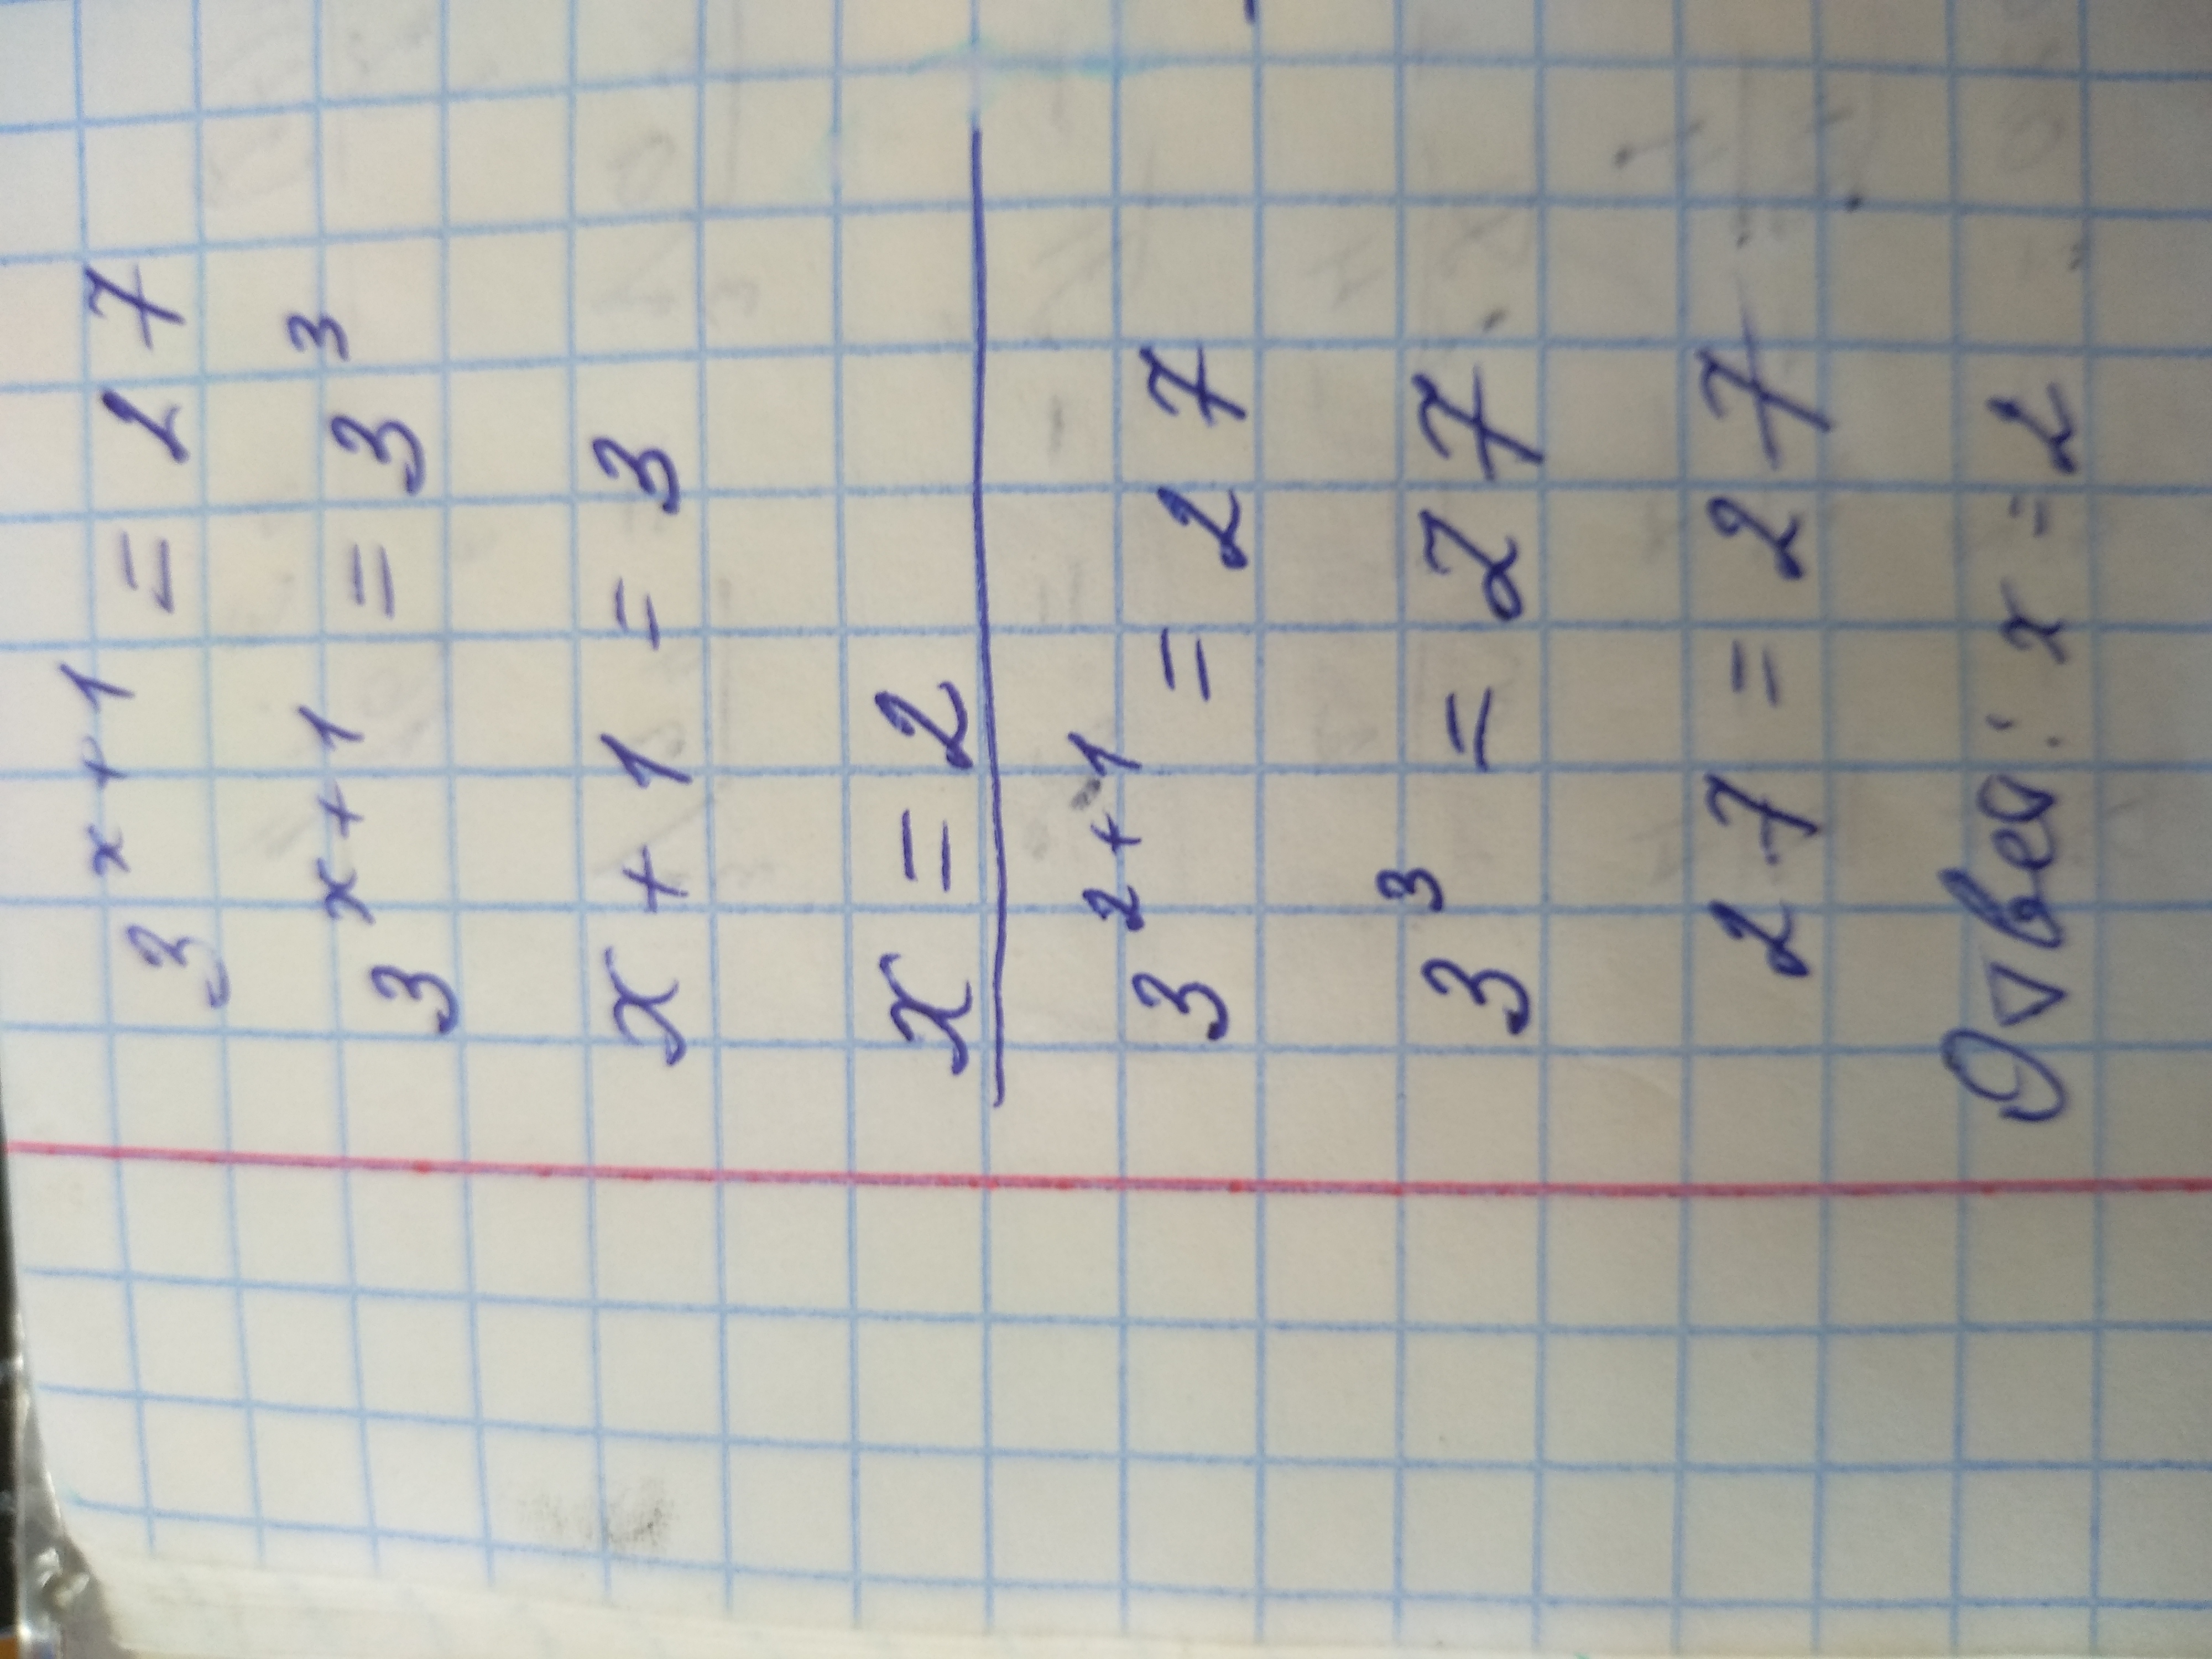 3^{x+1} = 27
3^{x+1} = 3^3
x + 1 = 3
x = 2
3^{2+1} = 27
3^3 = 27
27 = 27
Ответ: x = 2